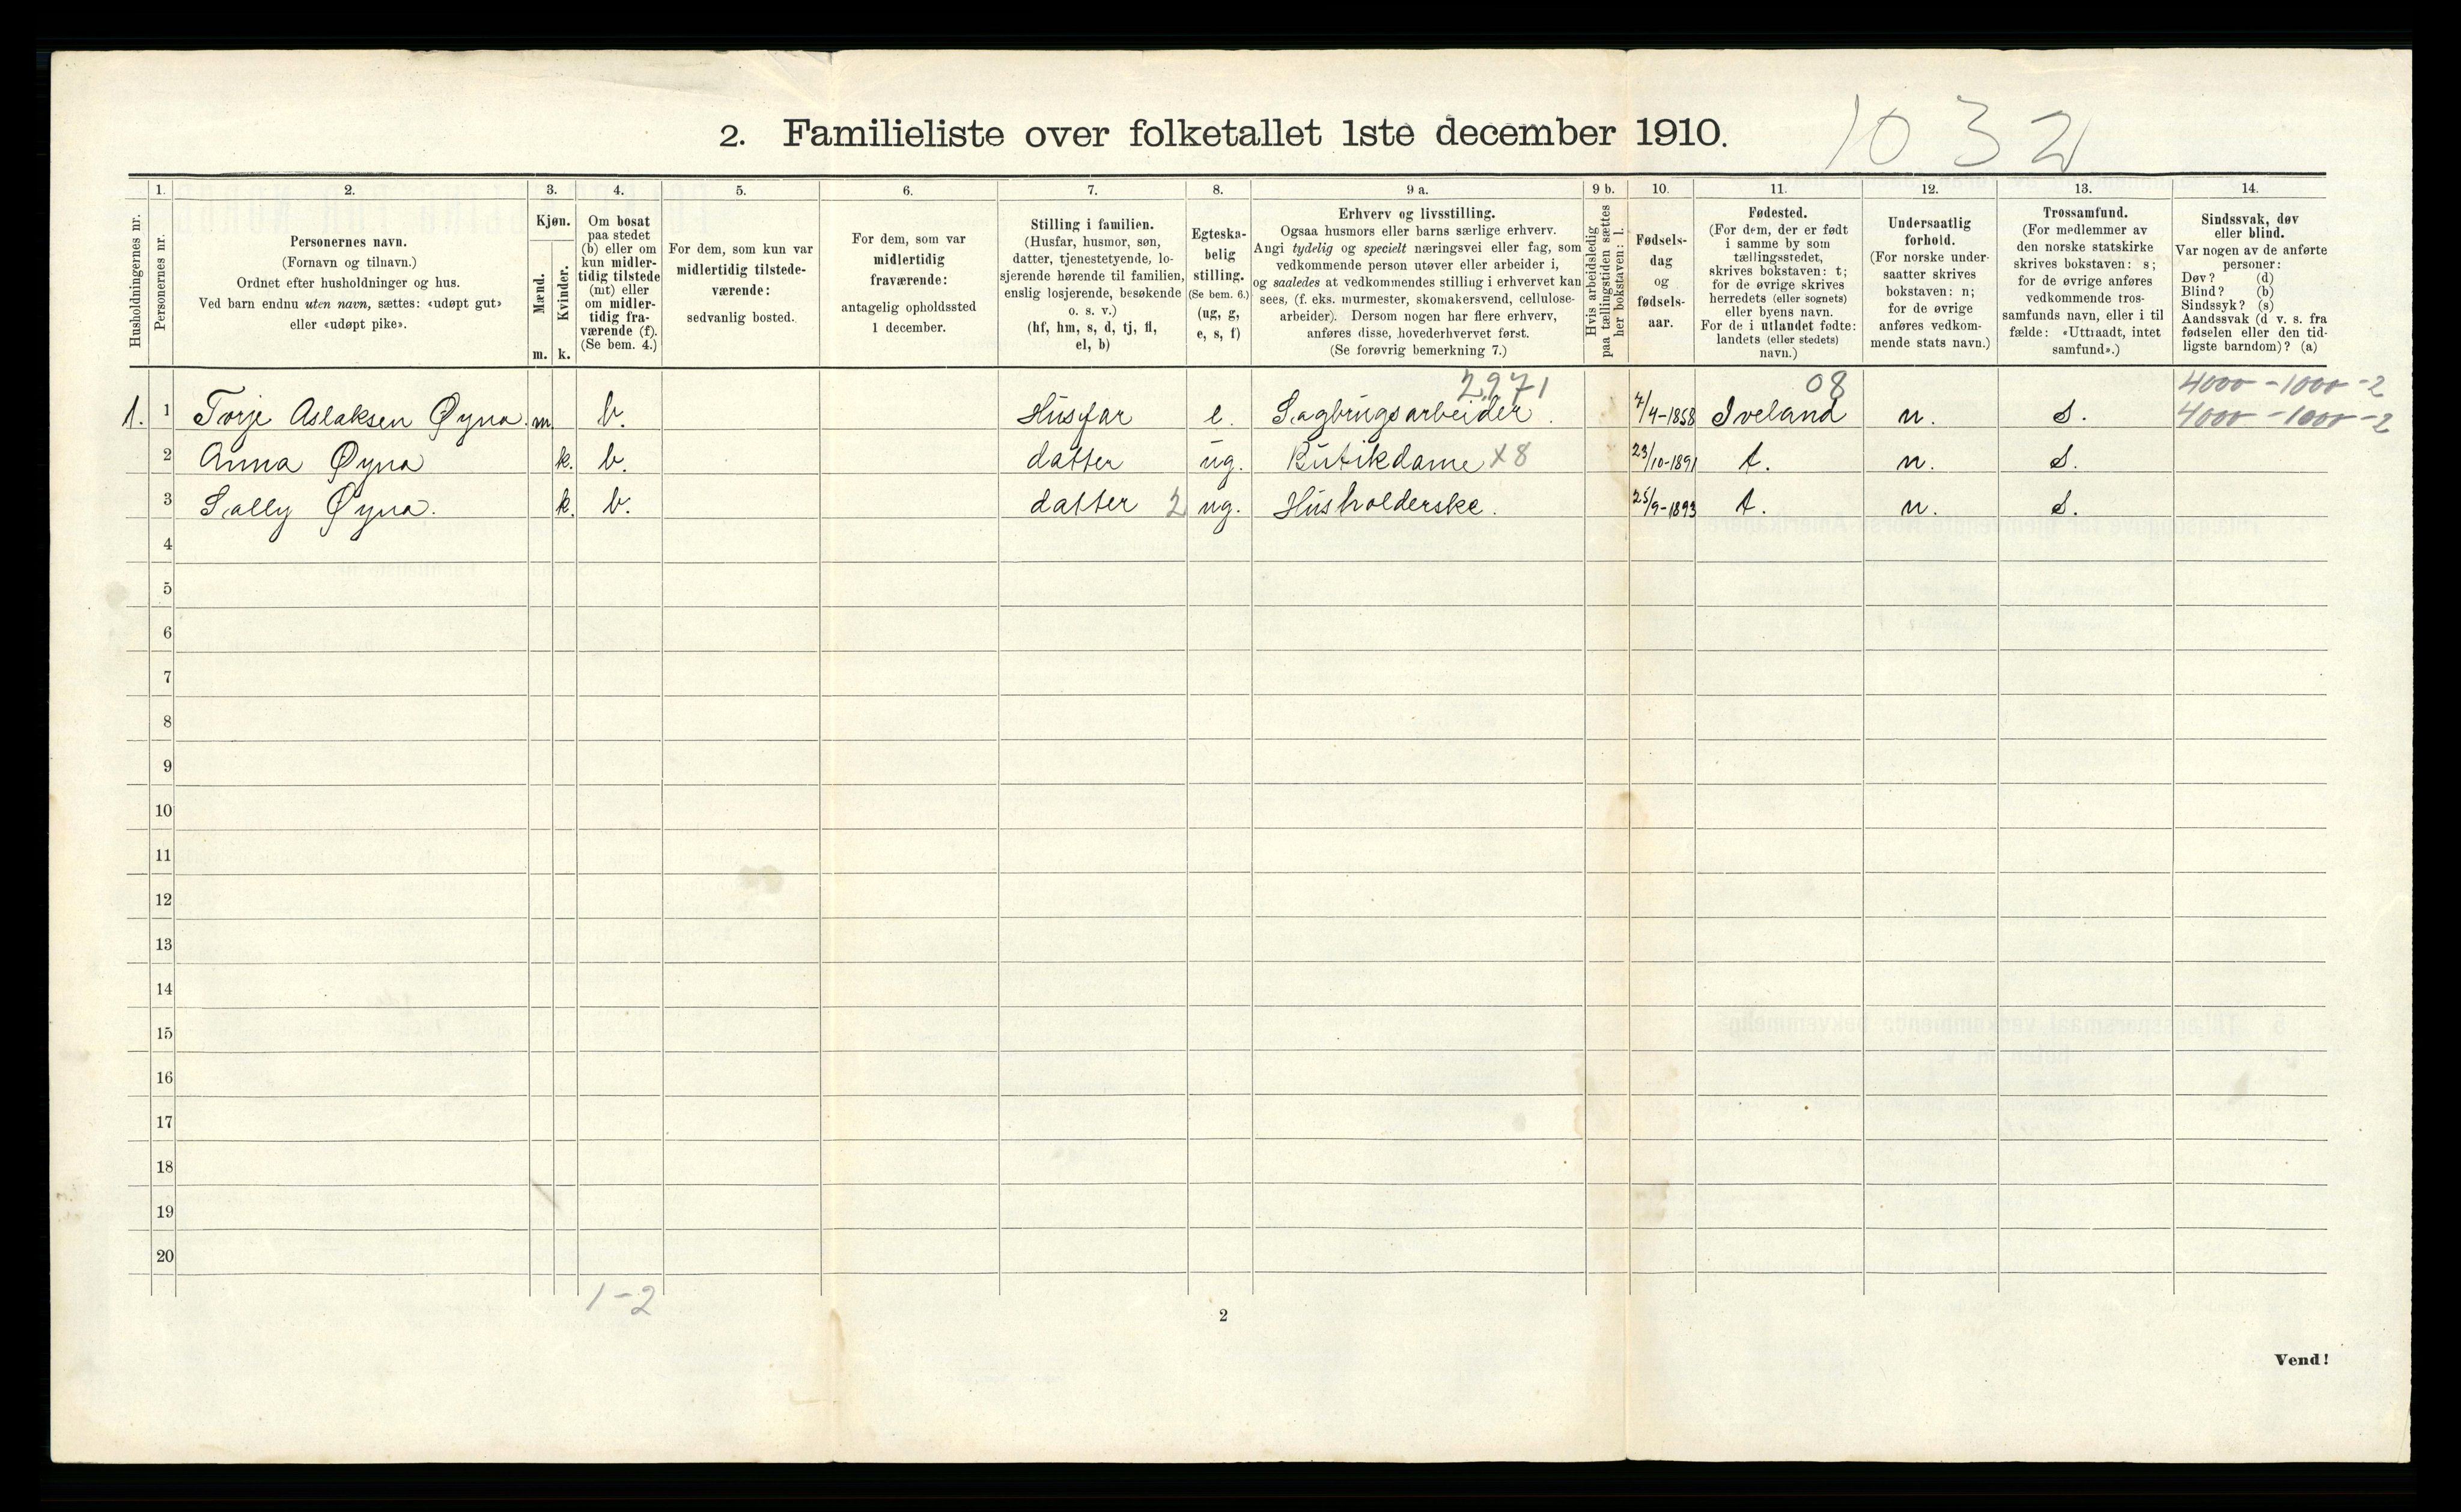 2. Familieliste over folketallet 1ste december 1910.
1032
Husholdningernes nr.
1.
Personernes nr.
2.
Personernes navn.
(Fornavn og tilnavn.)
Ordnet efter husholdninger og hus.
Ved barn endnu uten navn, sættes: «udøpt gut»
eller «udøpt pike».
3.
Kjøn.
Mænd.
Kvinder.
m. k.
4.
Om bosat
paa stedet
(b) eller om
kun midler-
tidig tilstede
(mt) eller
om midler-
tidig fra-
værende (f).
(Se bem. 4.)
5.
For dem, som kun var
midlertidig tilstede-
værende:
sedvanlig bosted.
6.
For dem, som var
midlertidig
fraværende:
antagelig opholdssted
1 december.
7.
Stilling i familien.
(Husfar, husmor, søn,
datter, tjenestetyende, lo-
sjerende hørende til familien,
enslig losjerende, besøkende
o. s. v.)
(hf, hm, s, d, tj, fl,
el, b)
8.
Egteska-
belig
stilling.
(Se bem. 6.)
(ug, g,
e, s, f)
9 a.
Erhverv og livsstilling.
Ogsaa husmors eller barns særlige erhverv.
Angi tydelig og specielt næringsvei eller fag, som
vedkommende person utøver eller arbeider i,
og saaledes at vedkommendes stilling i erhvervet kan
sees, (f. eks. murmester, skomakersvend, cellulose-
arbeider). Dersom nogen har flere erhverv,
anføres disse, hovederhvervet først.
(Se forøvrig bemerkning 7.)
9 b.
Hvis arbeidsledig
paa tællingstiden sættes
her bokstaven: l.
10.
Fødsels-
dag
og
fødsels-
aar.
11.
Fødested.
(For dem, der er født
i samme by som
tællingsstedet,
skrives bokstaven: t;
for de øvrige skrives
herredets (eller sognets)
eller byens navn.
For de i utlandet fødte:
landets (eller stedets)
navn.)
12.
Undersaatlig
forhold.
(For norske under-
saatter skrives
bokstaven: n;
for de øvrige
anføres vedkom-
mende stats navn.)
13.
Trossamfund.
(For medlemmer av
den norske statskirke
skrives bokstaven: s;
for de øvrige anføres
vedkommende tros-
samfunds navn, eller i til
fælde: «Uttraadt, intet
samfund».)
14.
Sindssvak, døv
eller blind.
Var nogen av de anførte
personer:
Døv? (d)
Blind? (b)
Sindssyk? (s)
Aandssvak (d v. s. fra
fødselen eller den tid-
ligste barndom)? (a)
2,971 08 4000-1000-2
1. 1 Torje Aslaksen Øyna. m. b. Husfar e. Sagbrugsarbeider. 7/4-1858 Iveland n. S. 4000-1000-2
2 Anna Øyna k. b. datter ug. Butikdame x8 23/10-1891 t. n. S.
3 Sally Øyna. k. b. datter 2 ug. Husholderske. 25/9-1893 t. n. S.
4
5
6
7
8
9
10
11
12
13
14
15
16
17
18
19
20
1-2
2
Vend!